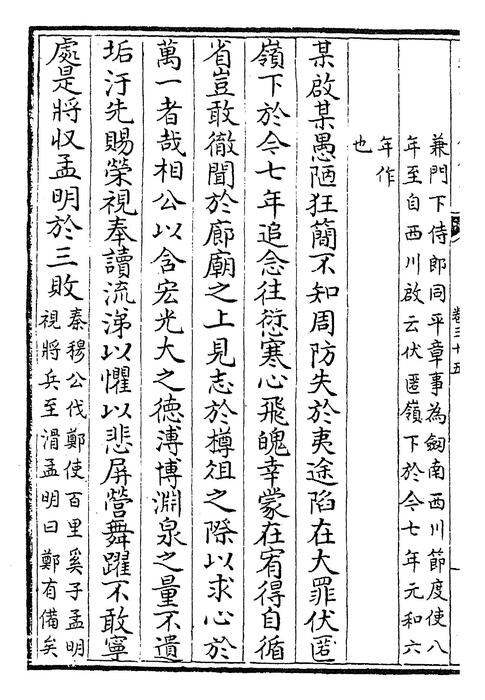 卷三十五
兼門下侍郎同平章事為劔南西川節度使八
年至自西川啟云伏匿嶺下於今七年元和六
年作
也
某啟某愚陋狂簡不知周防失於夷途陷在大罪伏匿
嶺下於今七年追念往愆寒心飛魄幸蒙在宥得自循
省豈敢徹聞於廊廟之上見志於樽俎之際以求心於
萬一者哉相公以含宏光大之德溥博淵泉之量不遺
垢汙先賜榮視奉讀流涕以懼以悲屏營舞躍不敢寧
處是將収孟明於三敗
秦穆公伐鄭使百里奚子孟明
視將兵至滑孟明曰鄭有備矣